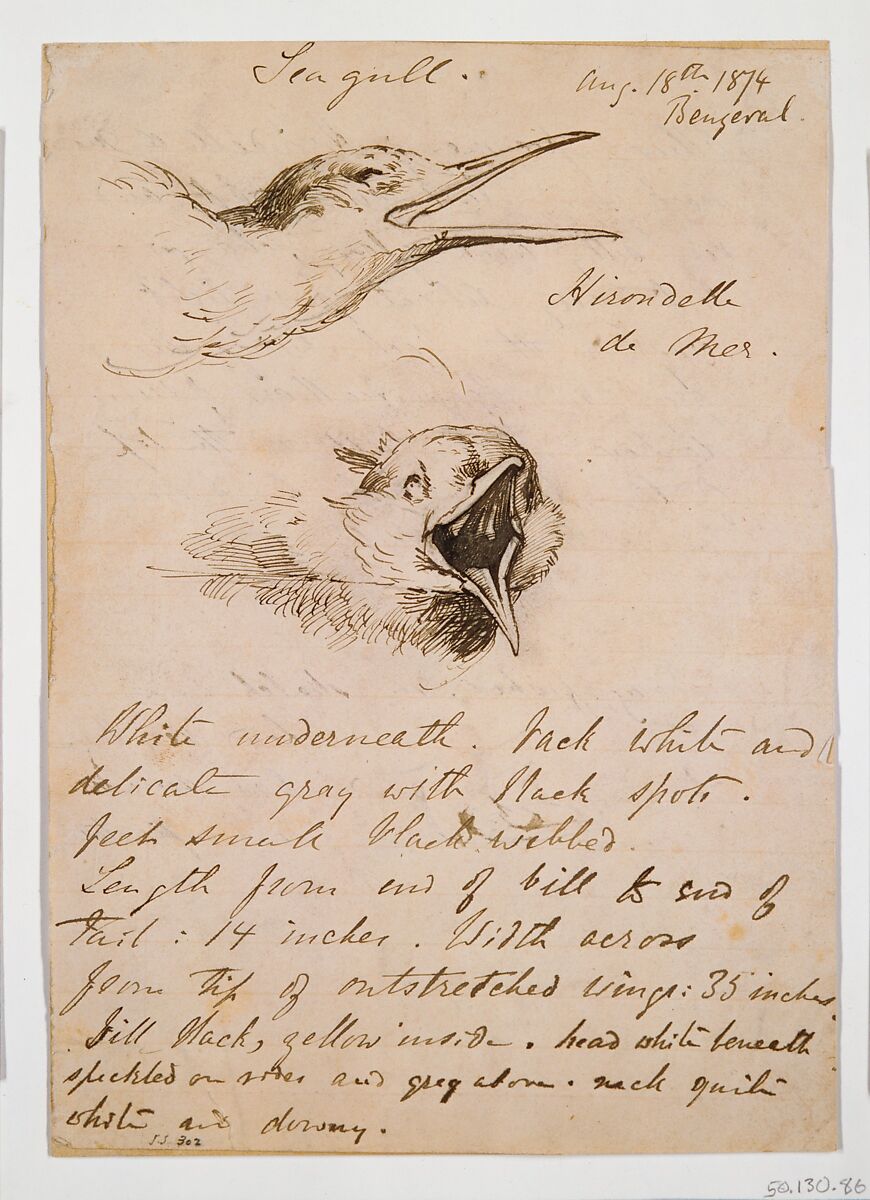 Sea gull.
Aug. 18th 1874
Benzeval.
Hirondelle
de Mer.
White underneath. Back white and
delicate gray with black spots.
feet small black webbed.
Length from end of bill to end of
Tail : 14 inches. Width across
from tip of outstretched wings: 35 inches
Bill black, yellow inside. head white beneath
speckled on sides and grey above. neck quite
white and downy.
S.S. 302
50.130.86